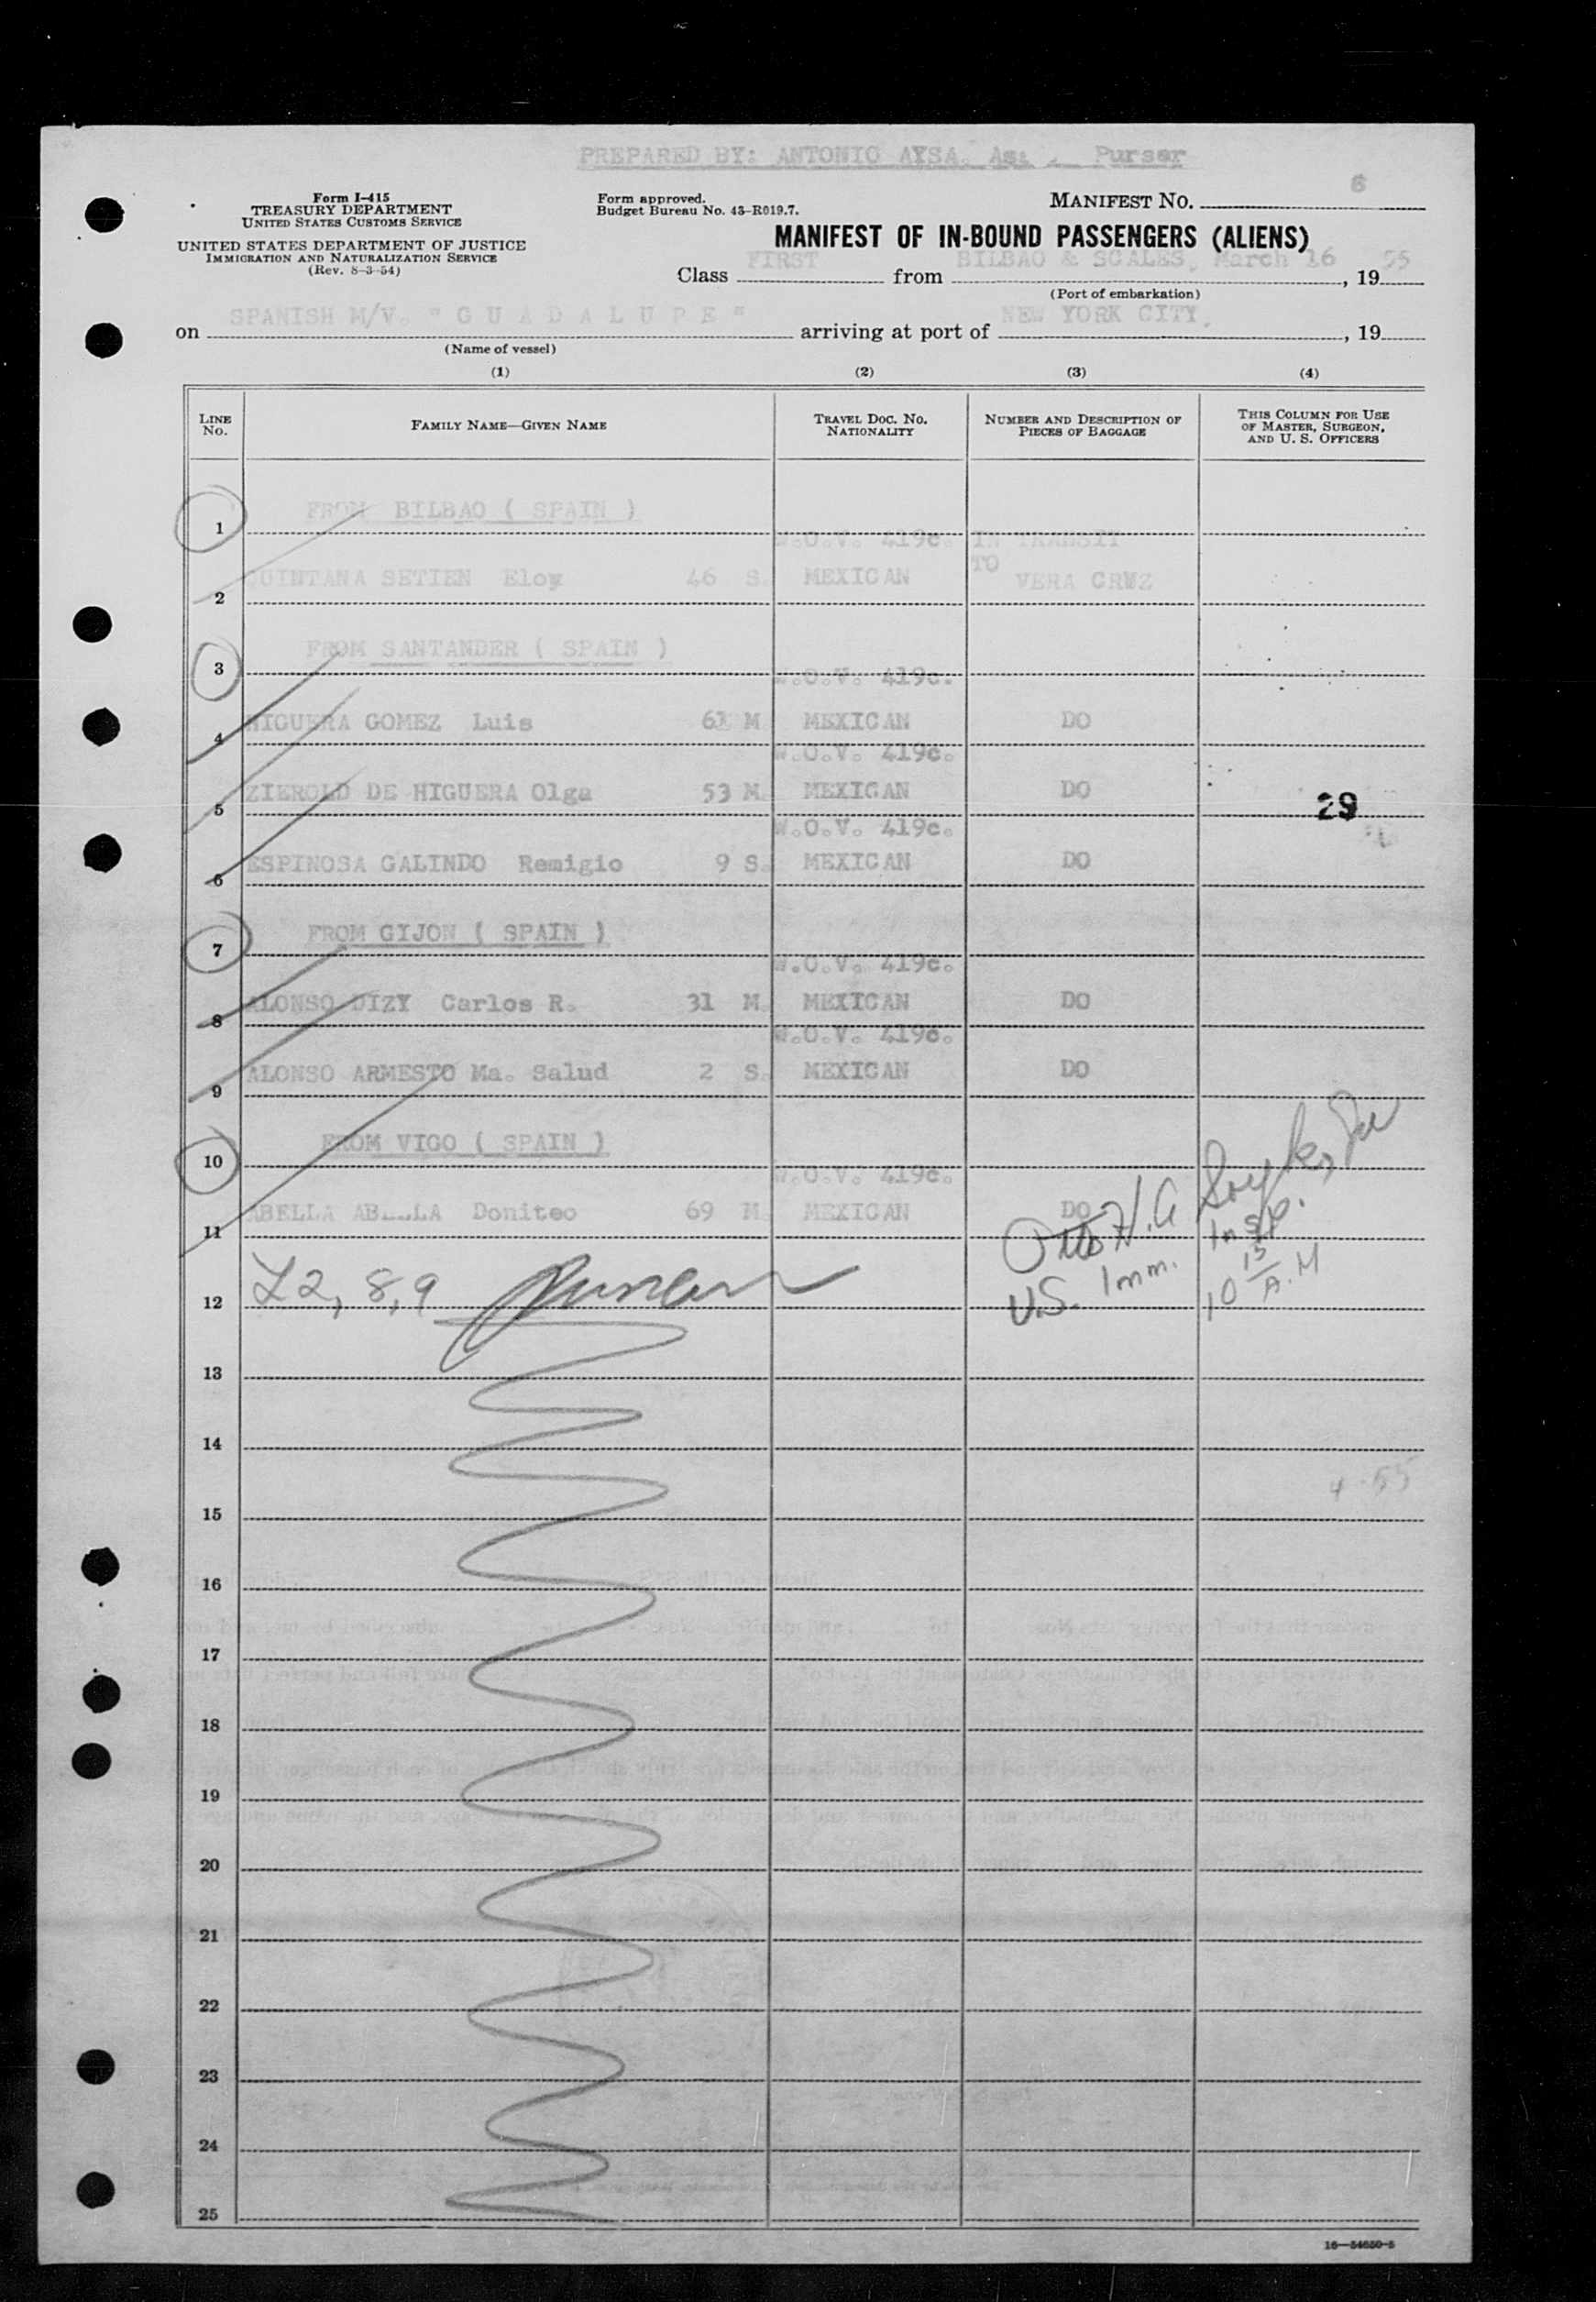 PREPARED BY: ANTONIO AYSA. Purser
Form I-415
TREASURY DEPARTMENT
UNITED STATES CUSTOMS SERVICE
UNITED STATES DEPARTMENT OF JUSTICE
IMMIGRATION AND NATURALIZATION SERVICE
(Rev. 8-3-54)
Form approved.
Budget Bureau No. 43-R019.7.
MANIFEST NO. 6
MANIFEST OF IN-BOUND PASSENGERS (ALIENS)
Class FIRST from BILBAO & SCALES, March 16, 1955
(Port of embarkation)
on SPANISH M/V. "GUADALUPE" arriving at port of NEW YORK CITY, 19
(Name of vessel)
(1) (2) (3) (4)
LINE NO.
FAMILY NAME—GIVEN NAME
TRAVEL DOC. NO. NATIONALITY
NUMBER AND DESCRIPTION OF PIECES OF BAGGAGE
THIS COLUMN FOR USE OF MASTER, SURGEON, AND U. S. OFFICERS
1 FROM BILBAO ( SPAIN )
W.O.V. 419c. IN TRANSIT
2 QUINTANA SETIEN Eloy 46 S. MEXICAN TO VERA CRUZ
3 FROM SANTANDER ( SPAIN )
W.O.V. 419c.
4 HIGUERA GOMEZ Luis 61 M MEXICAN DO
W.O.V. 419c.
5 ZIEROLD DE HIGUERA Olga 53 M. MEXICAN DO
29
W.O.V. 419c.
6 ESPINOSA GALINDO Remigio 9 S. MEXICAN DO
7 FROM GIJON ( SPAIN )
W.O.V. 419c.
8 ALONSO DIZY Carlos R. 31 M. MEXICAN DO
W.O.V. 419c.
9 ALONSO ARMESTO Ma. Salud 2 S. MEXICAN DO
10 FROM VIGO ( SPAIN )
W.O.V. 419c.
11 ABELLA ABELLA Doniteo 69 M. MEXICAN DO
Otto H. G
U.S. Imm. Insp.
10 15 A.M
12 L2, 8, 9
13
14
4-55
15
16
17
18
19
20
21
22
23
24
25
16—54650-5